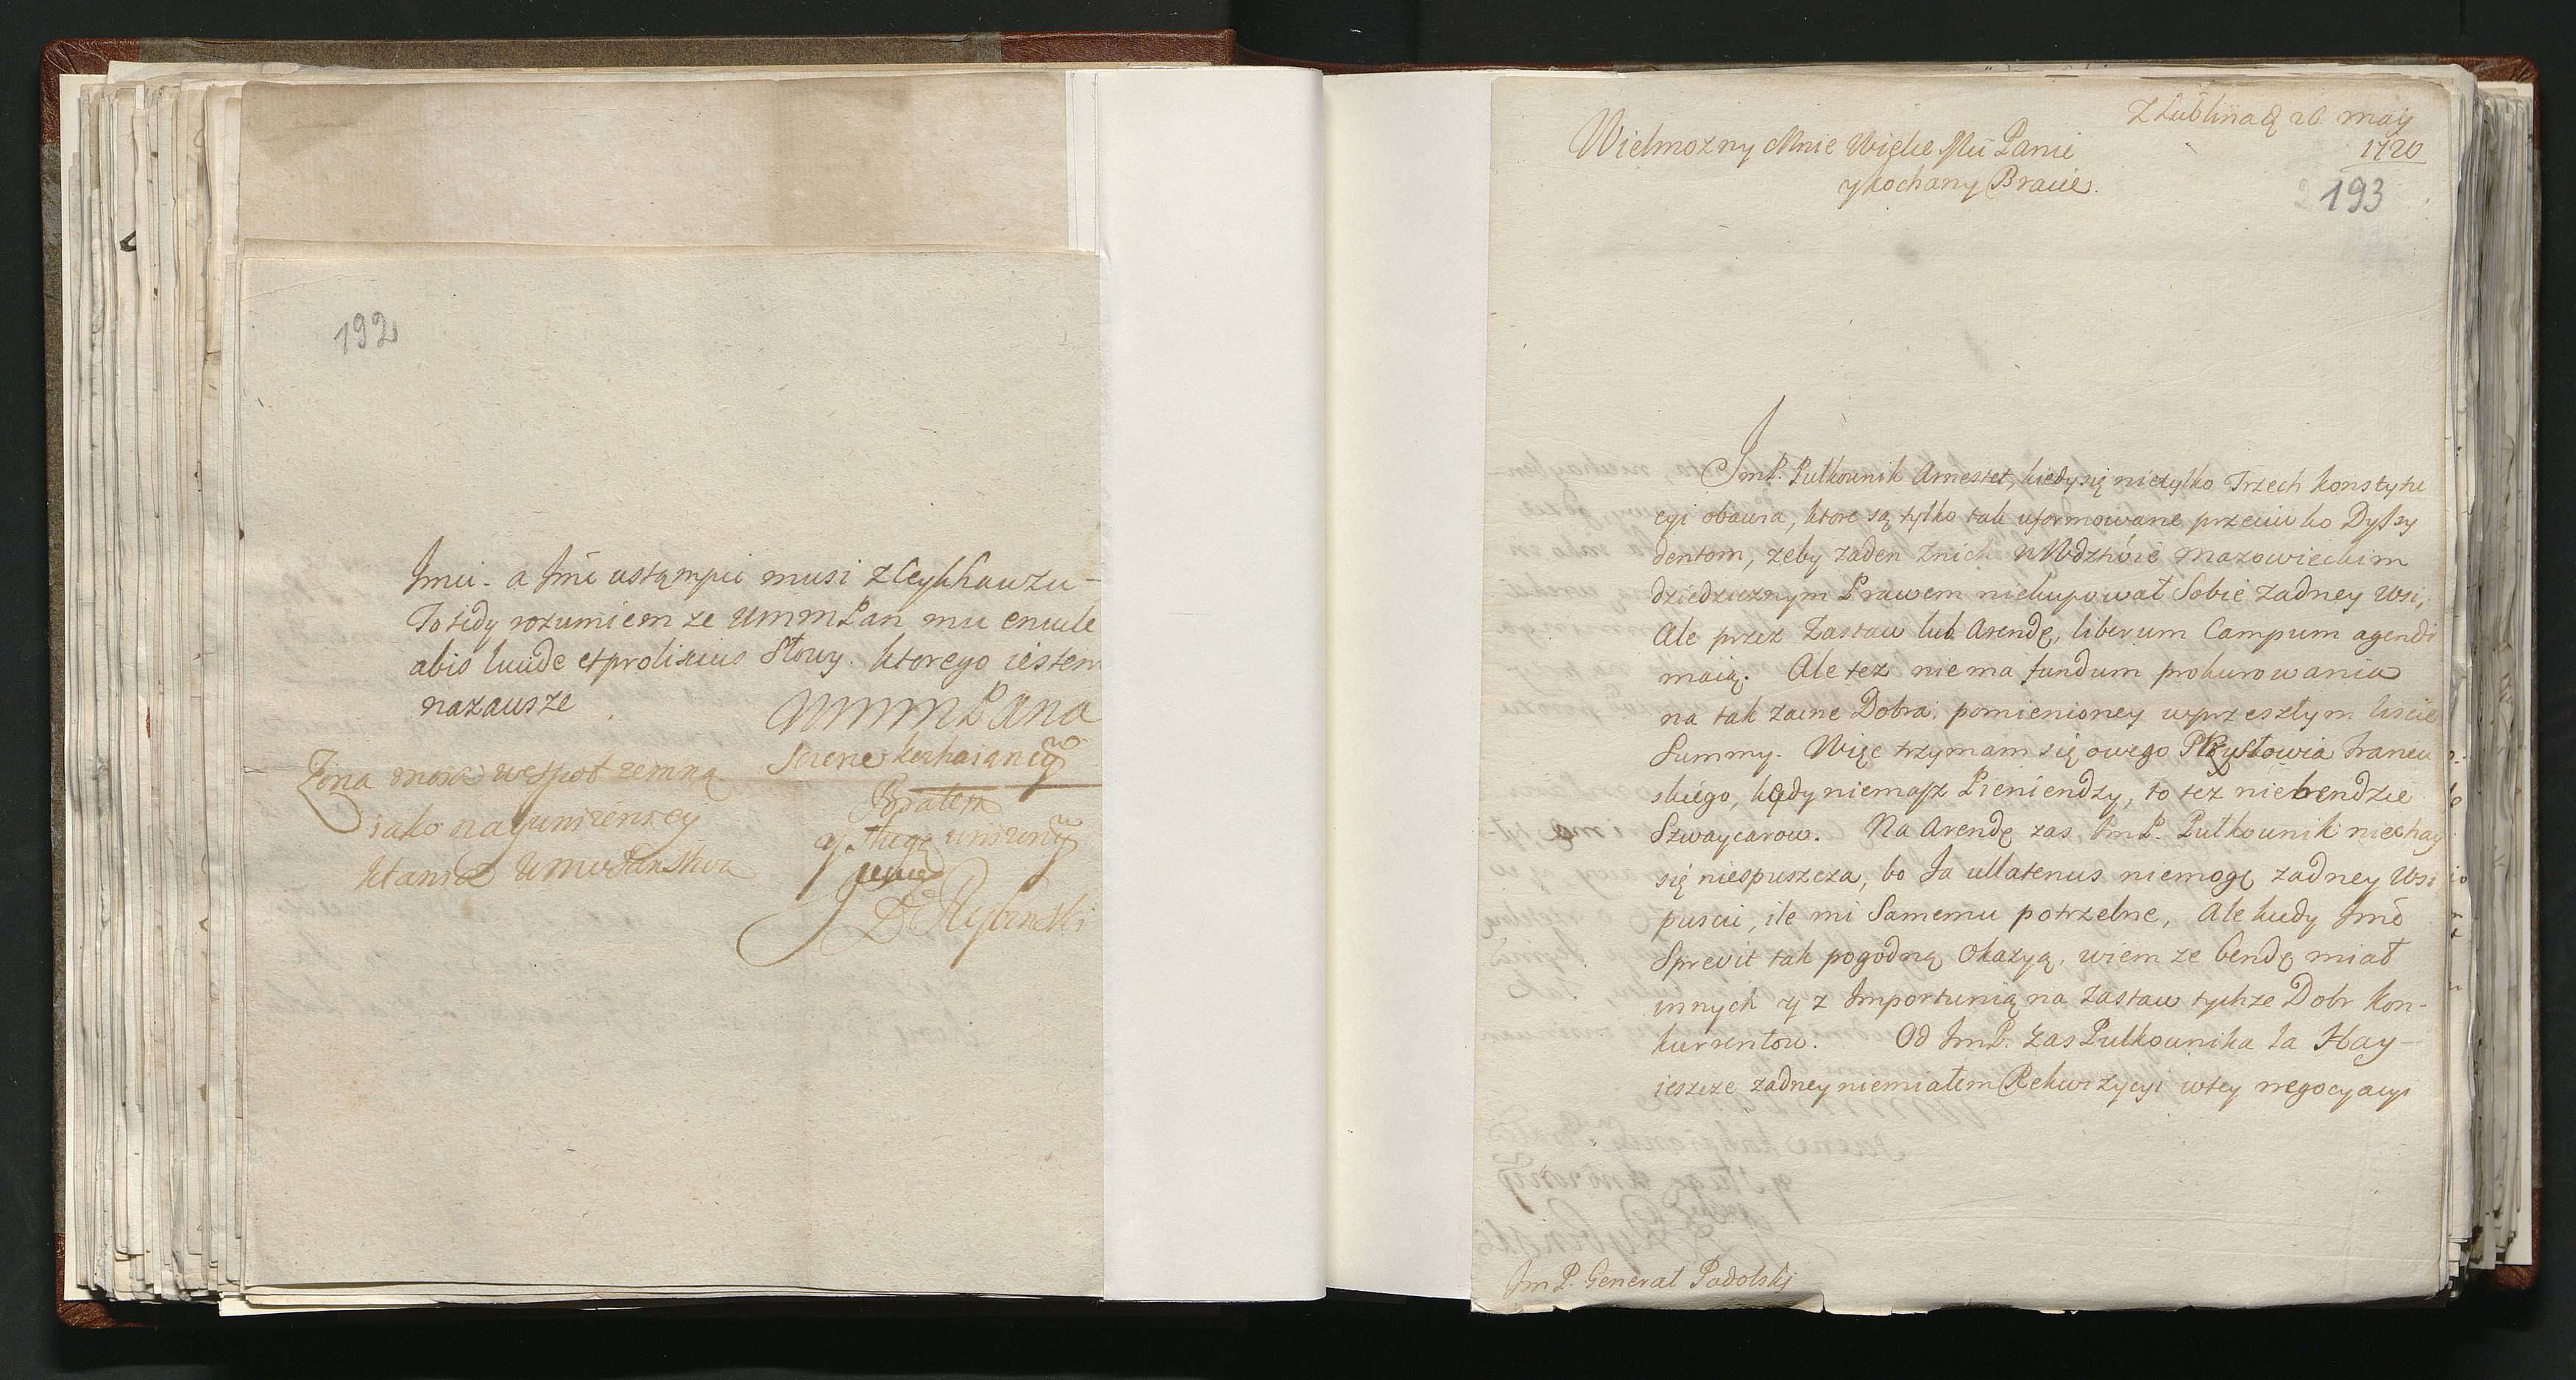 192
Imci. a Imć ustąmpic musi z Ceykhauzu –
To tedy rozumiem ze UmmPan mu enucle
abis lucide et prolixius Słowy. ktorego iestem
nazawsze
UmmmPana
Szczerze kochaiącym
Bratem
y sługą unizonym
Rybinski
Zona moia wespoł zemną
iako nayunizeniey
kłania UmwPanstwu
Z Lublina d 26 may
1720
193
Wielmozny Mnie Wielce Mci Panie
y kochany Bracie.
ImP. Pułkownik Amestet, kiedy się nietylko Trzech konstytu
cyi obawia, ktore są tylko tak uformowane przeciwko Dyssy
dentom, zeby zaden znich w Wdztwie Mazowieckim
dziedzicznym Prawem niekupował Sobie zadney Wsi,
Ale przez Zastaw lub Arendę, liberum Campum agendi
maią. Ale tez niema fundum prokurowania
na tak zacne Dobra, pomienioney wprzeszłym liscie
Summy. Więc trzymam się owego Przysłowia francu
skiego, kędy niemasz Pieniendzy, to też niebendzie
Szwaycarow. Na Arendę zas ImP. Pułkownik niechay
się niespuszcza, bo Ja ullatenus niemogę zadney Wsi
puscic, ile mi Samemu potrzebne, Ale kiedy Imć
Sprevit tak pogodną Okazyą, wiem ze bendę miał
innych y z Importunią na zastaw tychze Dobr kon-
kurrentow. Od ImP. zas Pułkownika la Hay –
ieszcze zadney niemiałem Rekwizycyi wtey negocyacyi
ImP. Generał Podolskj